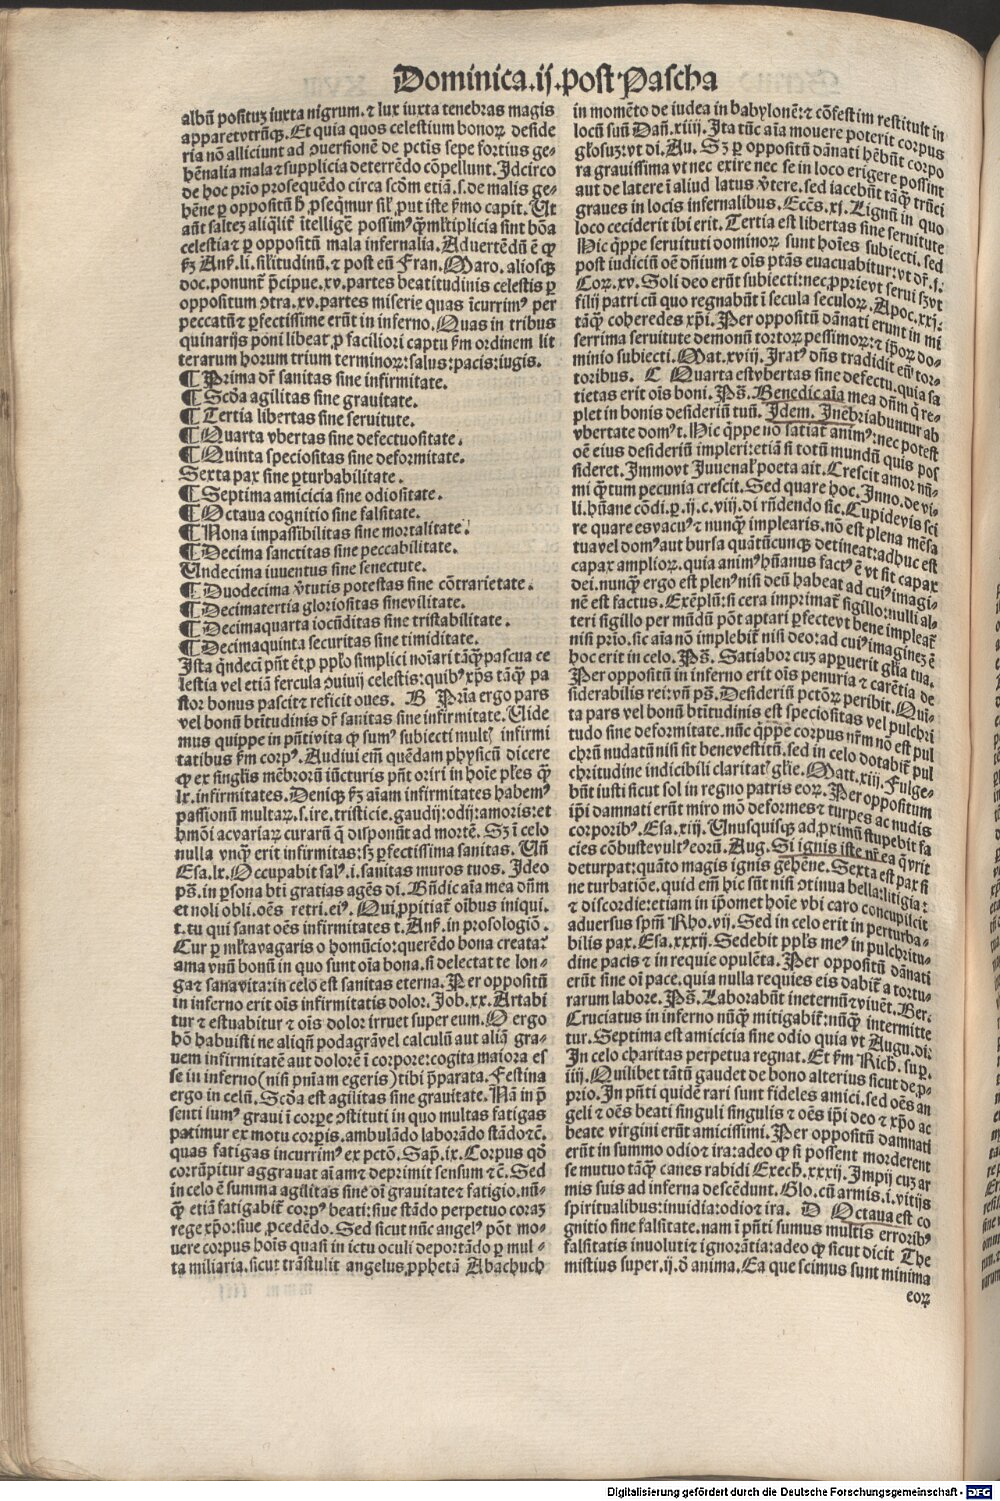 Dominica.ij.post Pascha
albū posituꝫ iuxta nigrum.⁊ lux iuxta tenebras magis
apparet vtrūqꝫ.Et quia quos celestium bonoꝝ deside
ria nō alliciunt ad ꝯuersionē de pctis sepe fortius ge-
hēnalia mala ⁊ supplicia deterrēdo cōpellunt.Idcirco
de hoc prio prosequēdo circa scōm etiā.s.de malis ge-
hēne ꝑ oppositū h̄ ꝓseqmur sil' ꝓut iste ẜmo capit.Ut
aūt saltez aliqlit̄ ītelligē possimꝰ q̄mltiplicia sint bōa
celestia ⁊ ꝑ oppositū mala infernalia.Aduertēdū ē ꝙ
ẜꝫ Ans.li.silitudinū.⁊ post eū Fran.Maro.aliosqꝫ
doc.ponunt̄ p̄cipue.xv.partes beatitudinis celestis ꝑ
oppositum ꝯtra.xv.partes miserie quas īcurrimꝰ per
peccatū ⁊ ꝑfectissime erūt in inferno.Quas in tribus
quinarijs poni libeat ꝓ faciliori captu ẜm ordinem lit
terarum horum trium terminoꝝ:salus:pacis:iugis.
¶ Prima dr̄ sanitas sine infirmitate.
¶ Scd̄a agilitas sine grauitate.
¶ Tertia libertas sine seruitute.
¶ Quarta vbertas sine defectuositate.
¶ Quinta speciositas sine deformitate.
Sexta pax sine ꝑturbabilitate.
¶ Septima amicicia sine odiositate.
¶ Octaua cognitio sine falsitate.
¶ Nona impassibilitas sine mortalitate.
¶ Decima sanctitas sine peccabilitate.
Undecima iuuentus sine senectute.
¶ Duodecima v̄tutis potestas sine cōtrarietate.
¶ Decimatertia gloriositas sine vilitate.
¶ Decimaquarta iocūditas sine tristabilitate.
¶ Decimaquinta securitas sine timiditate.
Ista qndeci pn̄t ēt ꝓ pplo simplici noīari tāq̄ pascua ce
lestia vel etiā fercula ꝯuiuij celestis:quibꝰ xp̄s tāq̄ pa
stor bonus pascit ⁊ reficit oues. B Prīa ergo pars
vel bonū btītudinis dr̄ sanitas sine infirmitate.Uide
mus quippe in pn̄ti vita ꝙ sumꝰ subiecti multꝭ infirmi
tatibus ẜm corpꝰ.Audiui em̄ quēdam physicū dicere
ꝙ ex singlis mēbroꝝ iūcturis pn̄t oriri in hoīe ples q̄
lx.infirmitates.Deniqꝫ ẜꝫ aīam infirmitates habemꝰ
passionū multaꝝ.s.ire.tristicie.gaudij:odij:amoris:et
hmōi ac variaꝝ curarū q̄ disponūt ad mortē.Sꝫ ī celo
nulla vnq̄ erit infirmitas:sꝫ ꝑfectissima sanitas.Uñ
Esa.lx.Occupabit salꝰ.i.sanitas muros tuos.Ideo
ps̄.in ꝑsona bti gratias agēs di.Bn̄dic aīa mea dn̄m
et noli obli.oēs retri.eiꝰ.Qui ꝓpitiat̄ oībus iniqui.
t.tu qui sanat oēs infirmitates t.Ans.in prosologiō.
Cur ꝑ mlta vagaris o homūcio:querēdo bona creata:
ama vnū bonū in quo sunt oīa bona.si delectat te lon-
ga ⁊ sana vita:in celo est sanitas eterna.Per oppositū
in inferno erit oīs infirmitatis dolor.Job.xx.Artabi
tur ⁊ estuabitur ⁊ oīs dolor irruet super eum.O ergo
hō habuisti ne aliqn̄ podagrā vel calculū aut aliā gra-
uem infirmitatē aut dolorē ī corpore:cogita maiora es
se in inferno(nisi pn̄iam egeris)tibi p̄parata.Festina
ergo in celū.Scd̄a est agilitas sine grauitate.Nā in p̄
senti sumꝰ graui ī corꝑe ꝯstituti in quo multas fatigas
patimur ex motu corꝑis.ambulādo laborādo stādo ⁊c̄.
quas fatigas incurrimꝰ ex pctō.Sap̄.ix.Corpus qd̄
corrūpitur aggrauat aīam ⁊ deprimit sensum ⁊c̄.Sed
in celo ē summa agilitas sine oī grauitate ⁊ fatigio.nū-
q̄ etiā fatigabit̄ corpꝰ beati:siue stādo perpetuo coraꝫ
rege xp̄o:siue ꝓcedēdo.Sed sicut nūc angelꝰ pōt mo-
uere corpus hoīs quasi in ictu oculi deportādo ꝑ mul-
ta miliaria.sicut trāstulit angelus ꝓphetā Abachuch
in momēto de iudea in babylonē:⁊ cōfestim restituit in
locū suū Dan̄.xiiij.Ita tūc aīa mouere poterit corpus
głosuꝫ:vt di.Au.Sꝫ ꝑ oppositū dānati hēbūt corpo
ra grauissima vt nec exire nec se in loco erigere possint
aut de latere ī aliud latus v̄tere.sed iacebūt tāq̄ trūci
graues in locis infernalibus.Eccs̄.xj.Lignū in quo
loco ceciderit ibi erit.Tertia est libertas sine seruitute
Hic q̄ppe seruituti dominoꝝ sunt hoīes subiecti.sed
post iudiciū oē dn̄ium ⁊ oīs ptās euacuabitur:vt dr̄.j.
Coꝝ.xv.Soli deo erūt subiecti:nec ꝓprie vt serui sꝫ vt
filij patri cū quo regnabūt ī secula seculoꝝ.Apoc.xxj.
tāq̄ coheredes xp̄i.Per oppositū dānati erunt in mi
serrima seruitute demonū tortoꝝ pessimoꝝ:⁊ ip̄oꝝ do-
minio subiecti.Mat.xviij.Iratꝰ dn̄s tradidit eū tor-
toribus. C Quarta est vbertas sine defectu.quia sa
tietas erit oīs boni.Ps̄.Benedic aīa mea dn̄m q̄ re-
plet in bonis desideriū tuū.Idem.Inebriabuntur ab
vbertate domꝰ t.Hic q̄ppe nō satiat̄ animꝰ:nec potest
oē eius desideriū impleri:etiā si totū mundū quis pos
sideret.Immo vt Iuuenal' poeta ait.Crescit amor nū-
mi q̄tum pecunia crescit.Sed quare hoc.Inno.de vi-
li.hūane cōdi.ꝑ.ij.c.viij.di rn̄dendo sic.Cupide vis sci
re quare es vacuꝰ ⁊ nunq̄ implearis.nō est plena mēsa
tua vel domꝰ aut bursa quātūcunqꝫ detineat:adhuc est
capax amplioꝝ.quia animꝰ hūanus factꝰ ē vt sit capax
dei.nunq̄ ergo est plenꝰ nisi deū habeat ad cuiꝰ imagi-
nē est factus.Exēplū:si cera imprimat̄ sigillo:nulli al-
teri sigillo per mūdū pōt aptari ꝑfecte vt bene impleat̄
nisi prio.sic aīa nō implebit̄ nisi deo:ad cuiꝰ imaginez ē
hoc erit in celo.Ps̄.Satiabor cuꝫ apparuerit gl̄ia tua.
Per oppositū in inferno erit oīs penuria ⁊ carētia de
siderabilis rei:vn̄ ps̄.Desideriū pctōꝝ peribit.Qui-
ta pars vel bonū btītudinis est speciositas vel pulchri
tudo sine deformitate.nūc q̄ppe corpus nr̄m nō est pul
chrū nudatū nisi sit bene vestitū.sed in celo dotabit̄ pul
chritudine indicibili claritatꝭ gl̄ie.Matt.xiij.Fulge-
būt iusti sicut sol in regno patris eoꝝ.Per oppositum
ip̄i damnati erūt miro mō deformes ⁊ turpes ac nudis
corporibꝰ.Esa.xiij.Unusquisqꝫ ad ꝓximū stupebit fa
cies cōbuste vultꝰ eorū.Aug.Si ignis iste nr̄ ea q̄ vrit
deturpat:quāto magis ignis gehēne.Sexta est pax si
ne turbatiōe.quid em̄ hic sūt nisi ꝯtinua bella:litigia:
⁊ discordie:etiam in ip̄omet hoīe vbi caro concupiscit
aduersus spm̄ Rho.vij.Sed in celo erit in perturba-
bilis pax.Esa.xxxij.Sedebit ppl's meꝰ in pulchritu-
dine pacis ⁊ in requie opulēta.Per oppositū dānati
erūt sine oī pace.quia nulla requies eis dabit̄ a tortu-
rarum labore.Ps̄.Laborabūt in eternū ⁊ viuēt.Ber.
Cruciatus in inferno nūq̄ mitigabit̄:nūq̄ intermitte
tur.Septima est amicicia sine odio quia vt Augu.di:
In celo charitas perpetua regnat.Et ẜm Rich.sup.
iiij.Quilibet tātū gaudet de bono alterius sicut de ꝓ-
prio.In pn̄ti quidē rari sunt fideles amici.sed oēs an
geli ⁊ oēs beati singuli singulis ⁊ oēs ip̄i deo ⁊ xp̄o ac
beate virgini erūt amicissimi.Per oppositū damnati
erūt in summo odio ⁊ ira:adeo ꝙ si possent morderent
se mutuo tāq̄ canes rabidi Ezech.xxxij.Impij cuꝫ ar
mis suis ad inferna descēdunt.Glo.cū armis.i.vitijs
spiritualibus:inuidia:odio ⁊ ira. D Octaua est co
gnitio sine falsitate.nam ī pn̄ti sumus multis erroribꝰ
falsitatis inuoluti ⁊ ignorātia:adeo ꝙ sicut dicit The
mistius super.ij.d̄ anima.Ea que scimus sunt minima
eoꝝ
Digitalisierung gefördert durch die Deutsche Forschungsgemeinschaft - DFG